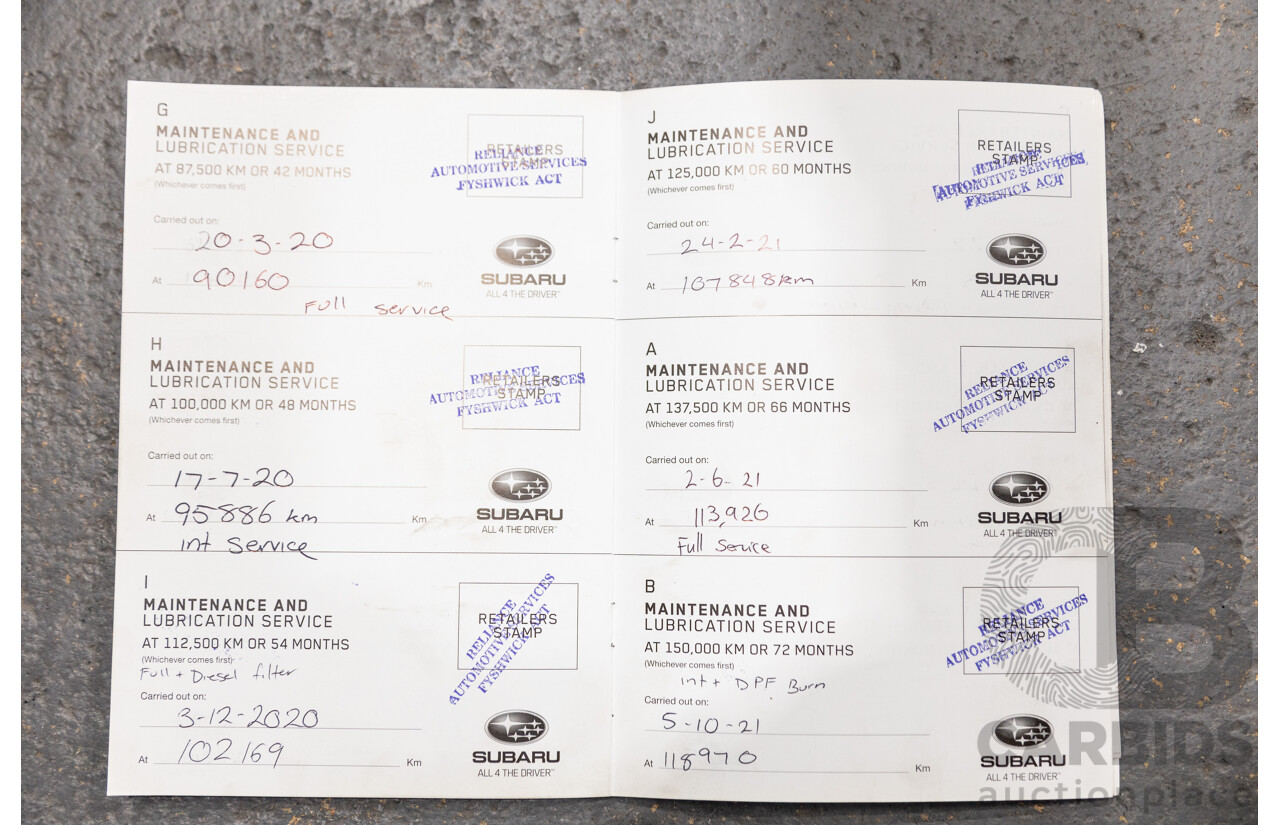 G
MAINTENANCE AND
LUBRICATION SERVICE
AT 87,500 KM OR 42 MONTHS
(Whichever comes first)
RETAILERS
STAMP
RELIANCE
AUTOMOTIVE SERVICES
FYSHWICK ACT
Carried out on:
20-3-20
At 90160 Km
Full service
SUBARU
ALL 4 THE DRIVER™
H
MAINTENANCE AND
LUBRICATION SERVICE
AT 100,000 KM OR 48 MONTHS
(Whichever comes first)
RETAILERS
STAMP
RELIANCE
AUTOMOTIVE SERVICES
FYSHWICK ACT
Carried out on:
17-7-20
At 95886 km Km
int Service
SUBARU
ALL 4 THE DRIVER™
I
MAINTENANCE AND
LUBRICATION SERVICE
AT 112,500 KM OR 54 MONTHS
(Whichever comes first)
Full + Diesel filter
RETAILERS
STAMP
RELIANCE
AUTOMOTIVE SERVICES
FYSHWICK ACT
Carried out on:
3-12-2020
At 102169 Km
SUBARU
ALL 4 THE DRIVER™
J
MAINTENANCE AND
LUBRICATION SERVICE
AT 125,000 KM OR 60 MONTHS
(Whichever comes first)
RETAILERS
STAMP
RELIANCE
AUTOMOTIVE SERVICES
FYSHWICK ACT
Carried out on:
24-2-21
At 107848km Km
SUBARU
ALL 4 THE DRIVER™
A
MAINTENANCE AND
LUBRICATION SERVICE
AT 137,500 KM OR 66 MONTHS
(Whichever comes first)
RETAILERS
STAMP
RELIANCE
AUTOMOTIVE SERVICES
FYSHWICK ACT
Carried out on:
2-6-21
At 113,926 Km
Full Service
SUBARU
ALL 4 THE DRIVER™
B
MAINTENANCE AND
LUBRICATION SERVICE
AT 150,000 KM OR 72 MONTHS
(Whichever comes first)
int + DPF Burn
RETAILERS
STAMP
RELIANCE
AUTOMOTIVE SERVICES
FYSHWICK ACT
Carried out on:
5-10-21
At 118970 Km
SUBARU
ALL 4 THE DRIVER™
CARBIDS
auctionplace